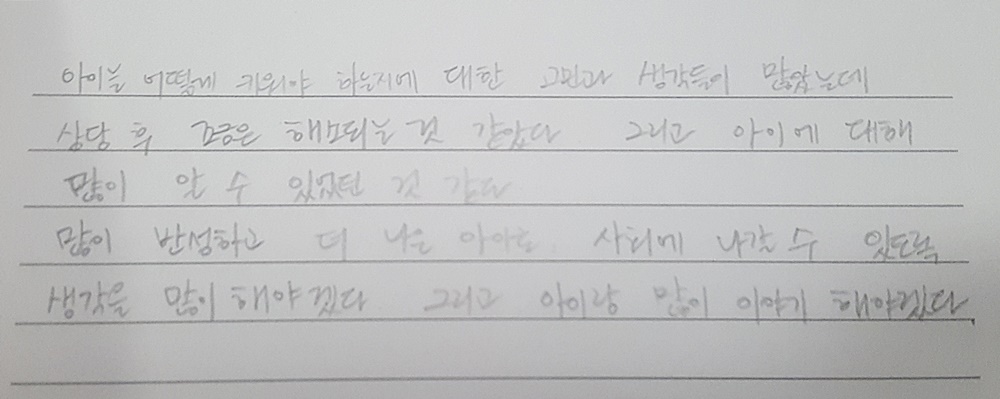 아이를 어떻게 키워야 하는지에 대한 고민과 생각들이 많았는데
상담 후 조금은 해소되는 것 같았다 그리고 아이에 대해
많이 알 수 있었던 것 같다
많이 반성하고 더 나은 아이로 사회에 나갈 수 있도록
생각을 많이 해야겠다 그리고 아이랑 많이 이야기 해야겠다.